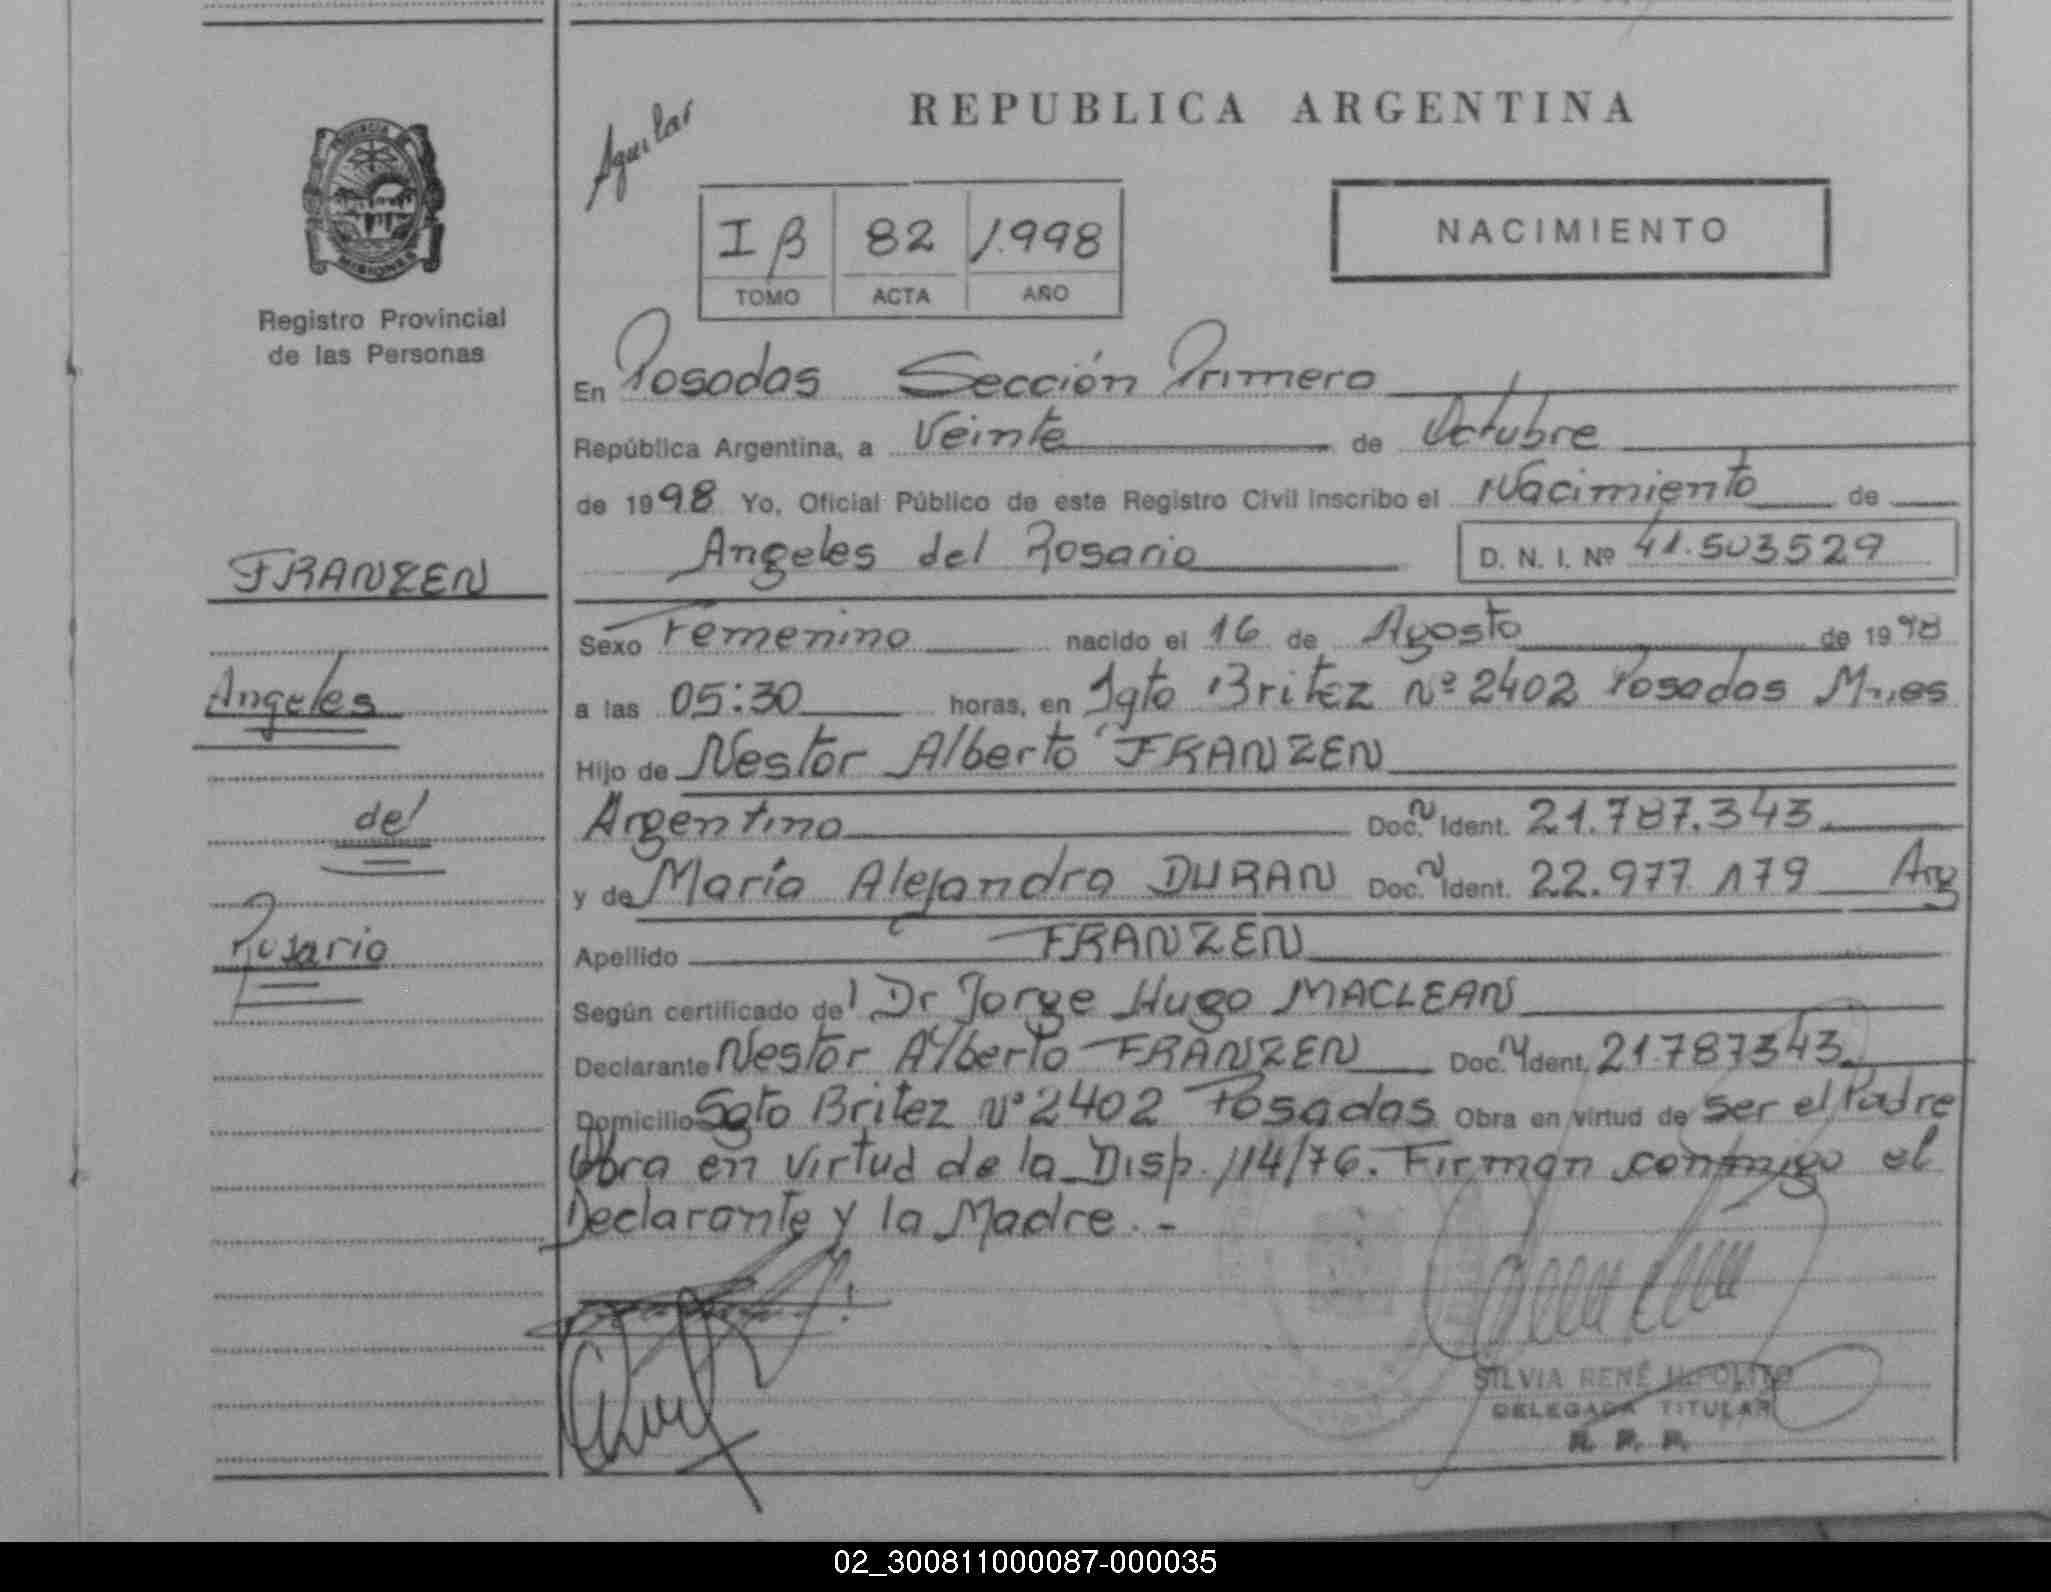 REPUBLICA ARGENTINA
Aguilar
PROVINCIA
MISIONES
Registro Provincial
de las Personas
I β 82 1.998
TOMO ACTA AÑO
NACIMIENTO
En Posadas Sección Primera
República Argentina, a Veinte de Octubre
de 1998 Yo, Oficial Público de este Registro Civil inscribo el Nacimiento de
Angeles del Rosario D. N. I. Nº 41.503529
FRANZEN
Angeles
del
Rosario
Sexo Femenino nacido el 16 de Agosto de 1998
a las 05:30 horas, en Sgto Britez Nº 2402 Posadas Mnes
Hijo de Nestor Alberto FRANZEN
Argentino Doc. N Ident. 21.787.343
y de María Alejandra DURAN Doc. N Ident. 22.977.179 Arg
Apellido FRANZEN
Según certificado del Dr Jorge Hugo MACLEAN
Declarante Nestor Alberto FRANZEN Doc. N Ident. 21.787343
Domicilio Sgto Britez Nº 2402 Posadas Obra en virtud de ser el Padre
Obra en virtud de la Disp. 114/76. Firman conmigo el
Declarante y la Madre.-
SILVIA RENÉ HIPOLITO
DELEGADA TITULAR
R. P. P.
02_300811000087-000035